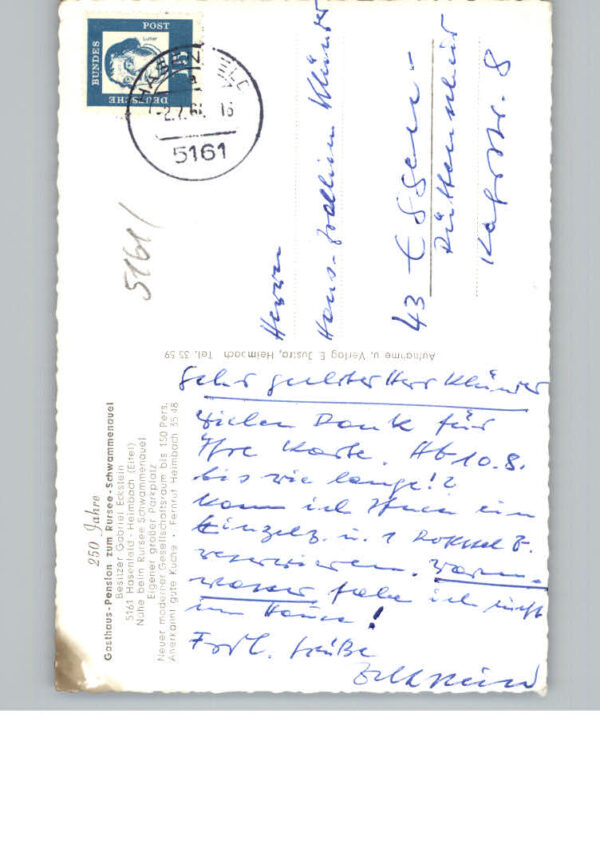 250 Jahre
Gasthaus-Pension zum Rursee-Schwammenauel
Besitzer Gabriel Eckstein
5161 Hasenfeld-Heimbach (Eifel)
Nähe beim Rursee Schwammenauel
Eigener großer Parkplatz
Neuer moderner Gesellschaftsraum bis 150 Pers.
Anerkannt gute Küche · Fernruf Heimbach 35 48
Aufnahme u. Verlag E. Justra, Heimbach Tel. 35 59
DEUTSCHE
BUNDES
POST
Luther
15
5161
5161/
Herrn
43 Essen-
8
Sehr geehrter Herr Klünder
Vielen Dank für
Ihre Karte. Ab 10.8.
bis wie lange!?
Kann ich Ihnen ein
Einzelz. u. 1 Doppel Z.
reservieren. Warm-
wasser habe ich nicht
im Hause!
Frdl. Grüße